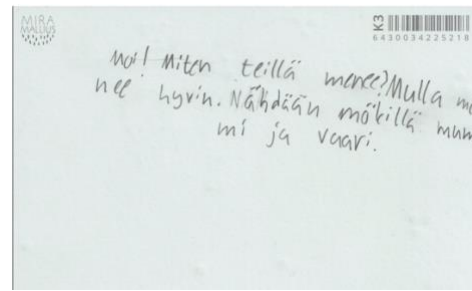 MIRA
MALLIUS
K3
6430034225218
Moi! Miten teillä menee? Mulla me
nee hyvin. Nähdään mökillä mum
mi ja vaari.